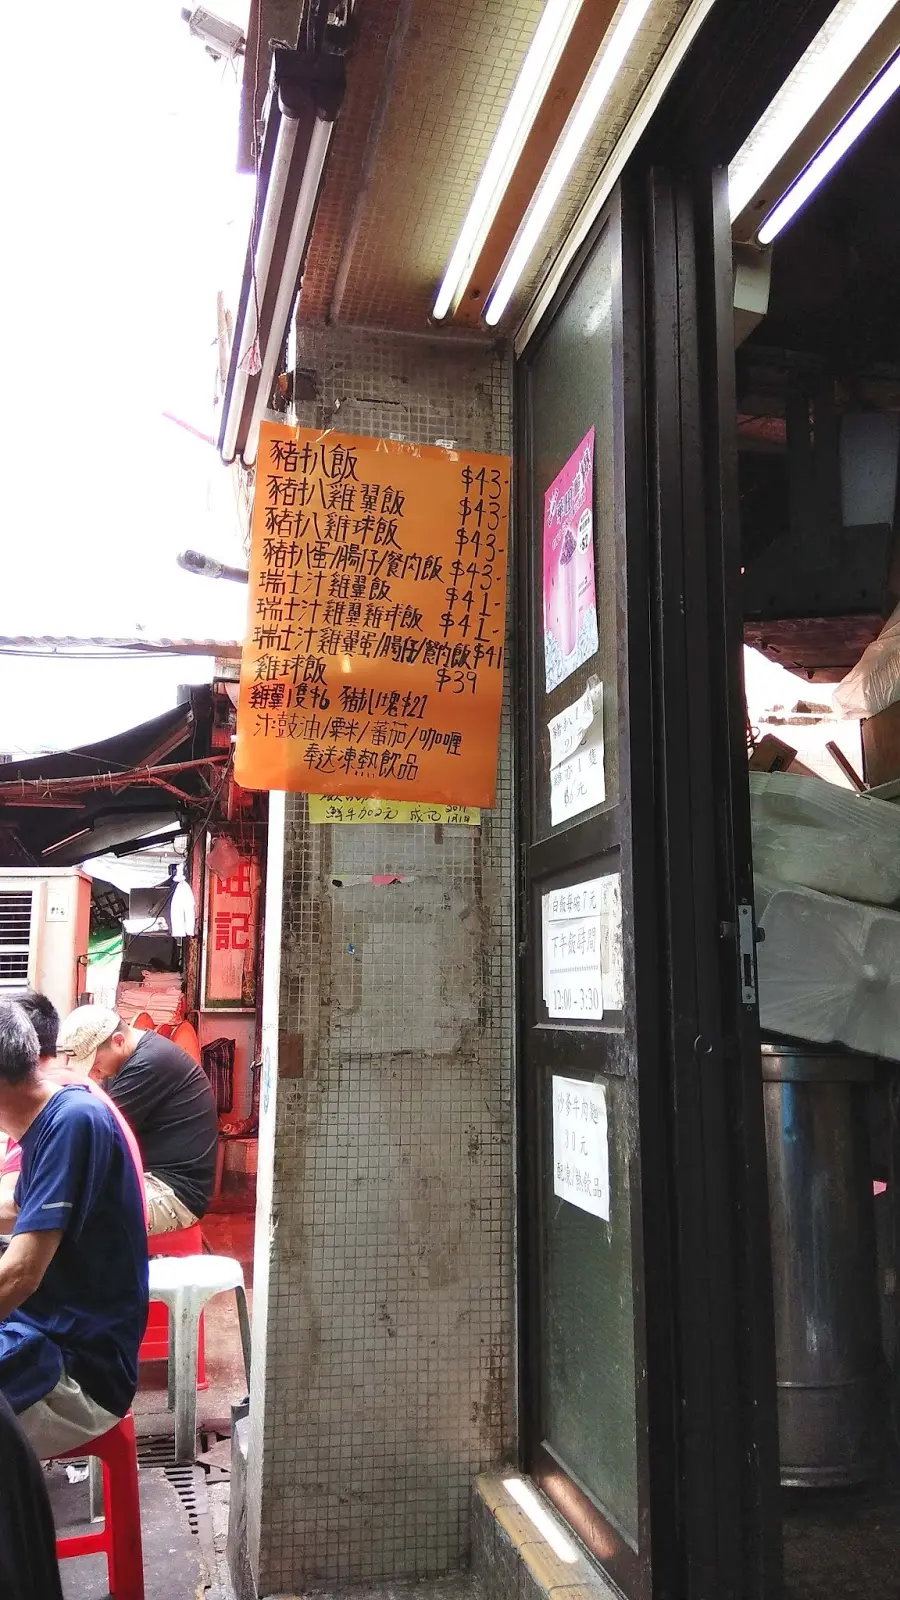 豬扒飯 $43-
豬扒雞翼飯 $43-
豬扒雞球飯 $43-
豬扒蛋/腸仔/餐肉飯 $43-
瑞士汁雞翼飯 $41-
瑞士汁雞翼雞球飯 $41-
瑞士汁雞翼蛋/腸仔/餐肉飯 $41
雞球飯 $39
雞翼1隻$6 豬扒1塊$21
汁:鼓油/粟米/蕃茄/咖喱
奉送凍熱飲品
鮮牛加2元
旺記
白飯每碗7元
下午飯時間
12:00-3:30
沙爹牛肉麵
30元
配凍/熱飲品